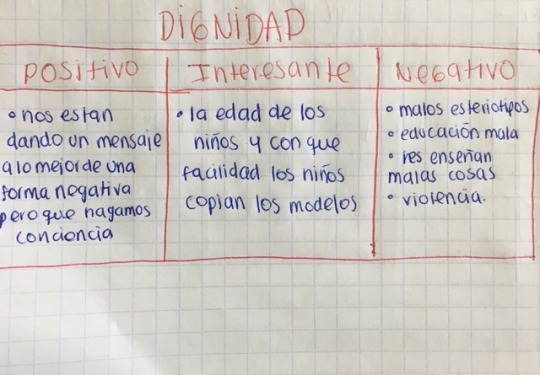 DIGNIDAD
POSITIVO
• nos estan
dando un mensaje
a lo mejor de una
forma negativa
pero que hagamos
conciencia
Interesante
• la edad de los
niños y con que
facilidad los niños
copian los modelos
NEGATIVO
• malos esteriotipos
• educación mala
• les enseñan
malas cosas
• violencia.